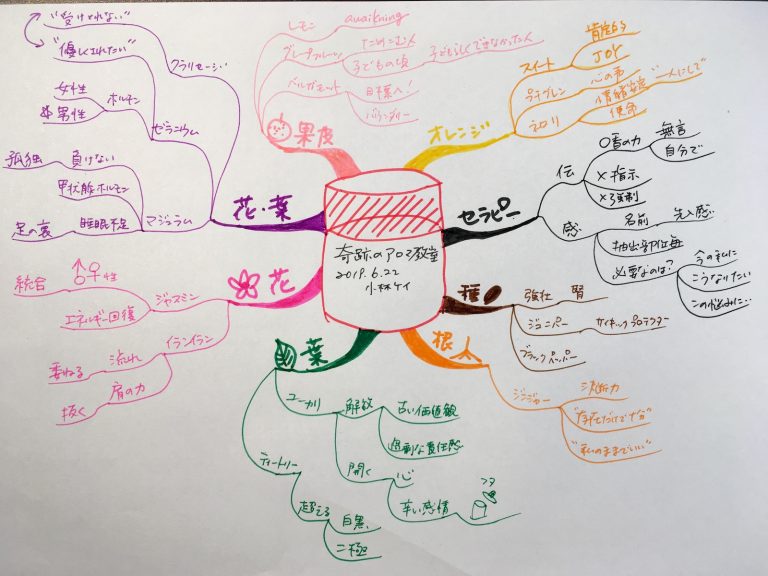 奇跡のアロマ教室
2019.6.22
小林ケイ
果皮
レモン
グレープフルーツ
ためこむ人
子どもの頃
子どもらしくできなかった人
ベルガモット
日葉へ!
バウンダリー
オレンジ
スイート
肯定的
JOY
プチグレン
心の声
ネロリ
情緒安定
使命
セラピー
伝
0番の力
無言
自分で
×指示
×強制
感
名前
先入感
抽出部位毎
必要なのは?
今の私に
こうなりたい
この悩みに…
種
強壮
腎
ジュニパー
サイキックプロテクター
ブラックペッパー
根
ジンジャー
決断力
"存在だけで十分"
"私のままでいい"
葉
ユーカリ
解放
古い価値観
過剰な責任感
開く
心
辛い感情
フタ
ティートリー
超える
白黒
二極
花
ジャスミン
♂♀性
統合
エネルギー回復
イランイラン
流れ
委ねる
肩の力
抜く
花・葉
クラリセージ
"受けとれない"
"優しくされたい"
ゼラニウム
ホルモン
女性
男性
マジョラム
負けない
孤独
甲状腺ホルモン
睡眠不足
足の裏